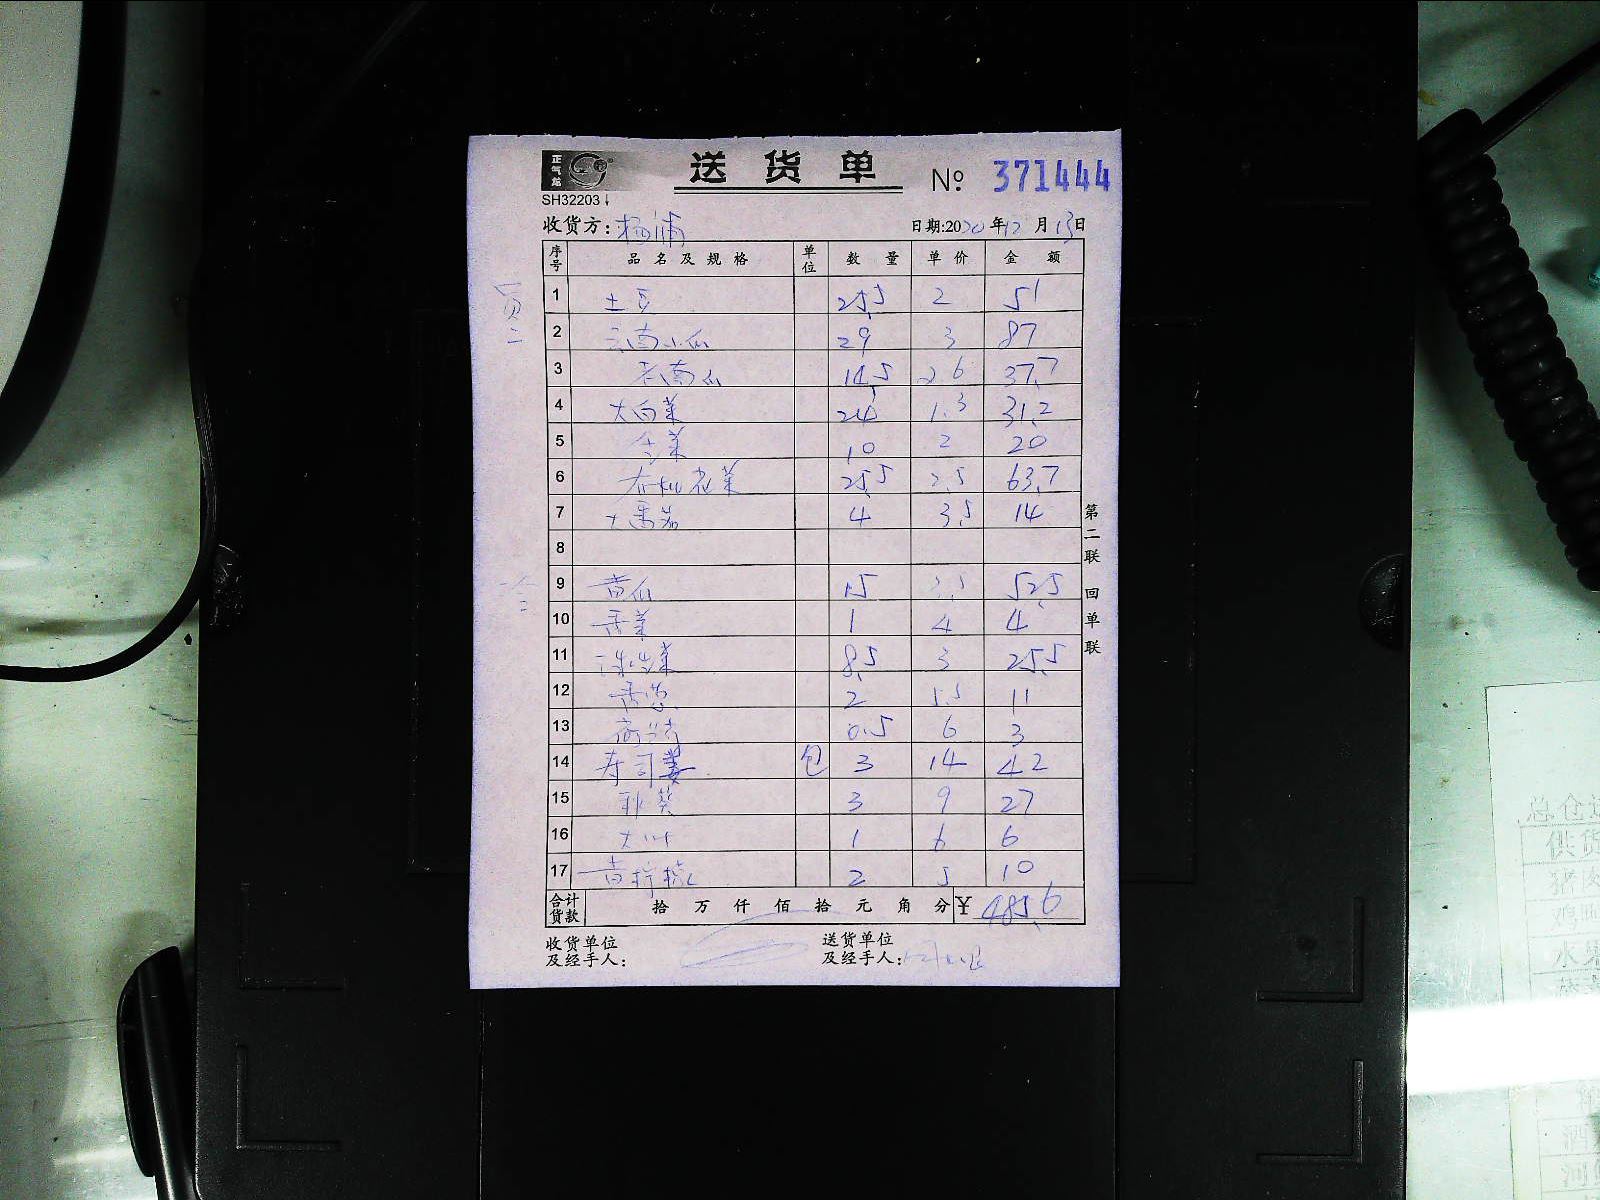 正气站
送货单 № 371444
SH32203
收货方：杨浦 日期:2020年12月13日
序号 品名及规格 单位 数量 单价 金额
1 土豆 25.5 2 51
2 云南小瓜 29 3 87
3 老南瓜 14.5 2.6 37.7
4 大白菜 24 1.3 31.2
5 10 2 20
6 有机花菜 25.5 2.5 63.7
7 大番茄 4 3.5 14
8
9 黄瓜 15 3.5 52.5
10 香菜 1 4 4
11 球生菜 8.5 3 25.5
12 香葱 2 5.5 11
13 0.5 6 3
14 寿司姜 包 3 14 42
15 秋葵 3 9 27
16 大叶 1 6 6
17 黄柠檬 2 5 10
合计货款 拾 万 仟 佰 拾 元 角 分 ¥ 485.6
收货单位及经手人：
送货单位及经手人：
第二联 回单联
总仓
供货
水果